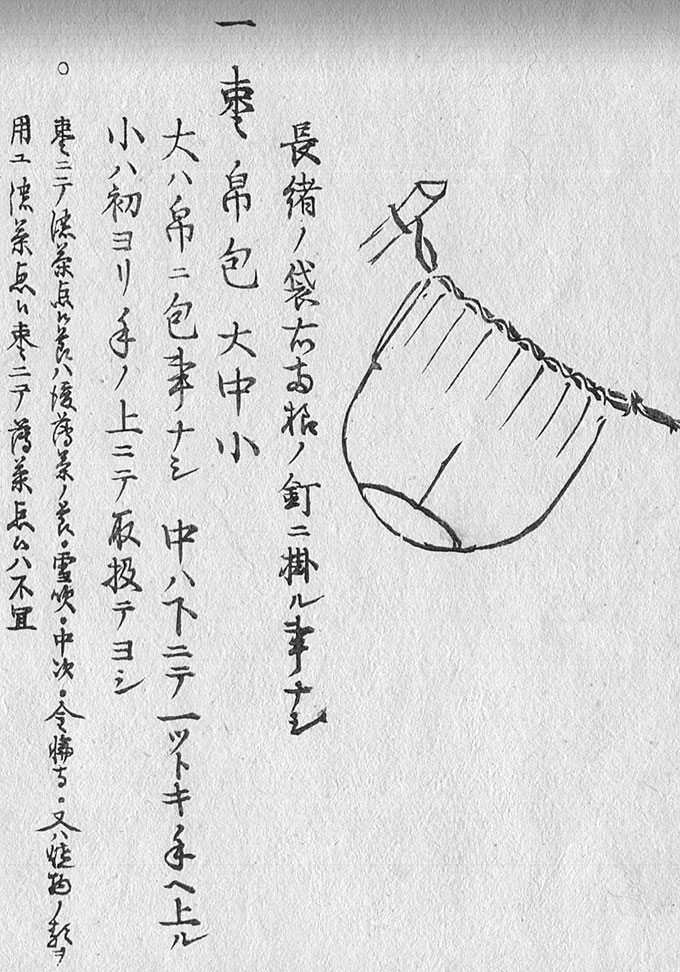 長緒ノ袋右両横ノ釘ニ掛ル事ナシ
一 棗ノ帛包 大中小
大ハ帛ニ包事ナシ 中ハ下ニテ一ツトキ手ヘ上ル
小ハ初ヨリ手ノ上ニテ取扱テヨシ
○ 棗ニテ濃茶点ル节ハ後薄茶ノ节。雪吹。中次。金輪寺。又ハ焼物ノ類ヲ
用ユ 濃茶点ル棗ニテ薄茶点ルハ不宜